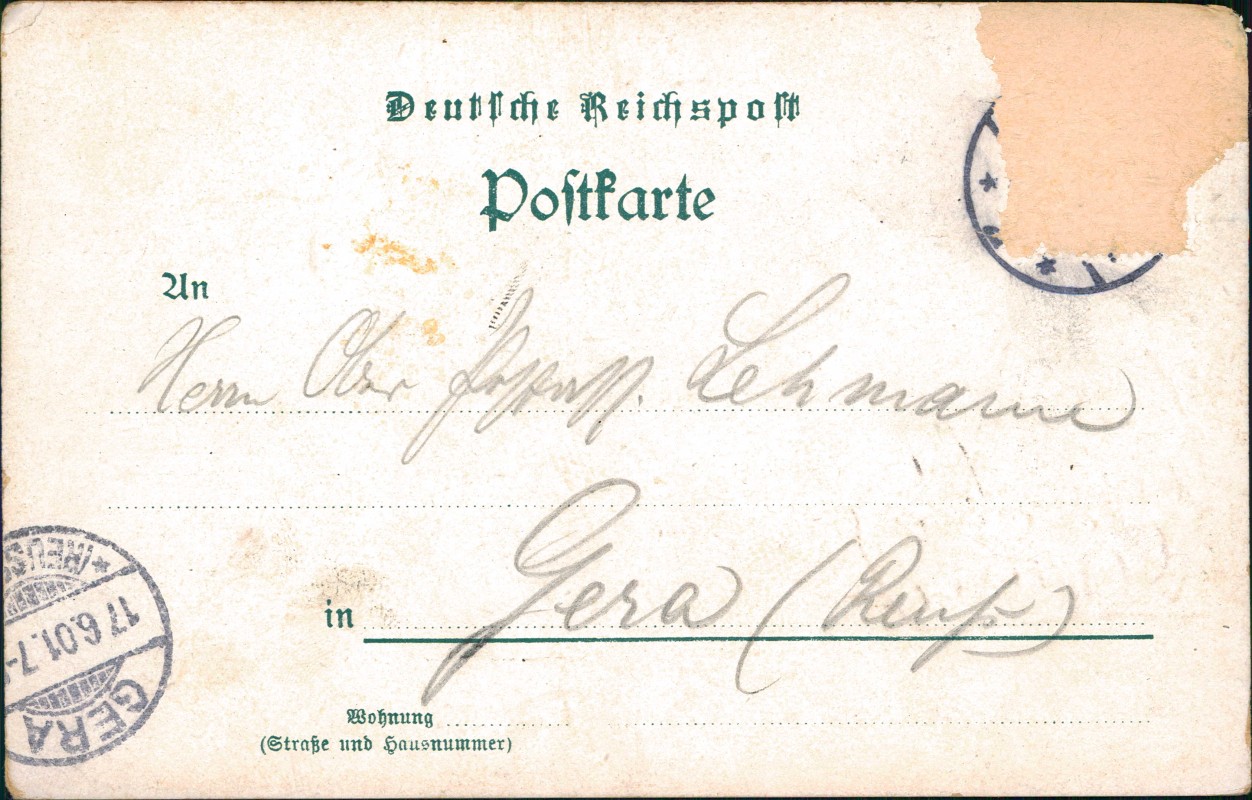 Deutsche Reichspost
Postkarte
An
Herrn Ober Postass. Lehmann
in Gera (Reuß)
Wohnung
(Straße und Hausnummer)
* (REUSS
17.6.01.7-
GERA